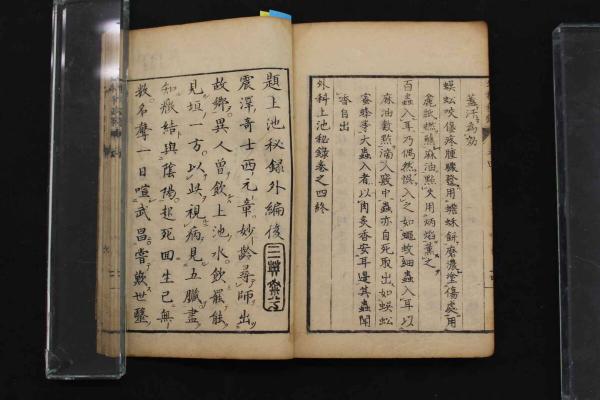 蓋汗為効
蜈蚣咬傷疼腫臓發用蟾蜍餅磨濃塗傷處用
麁紙撚蘸麻油點火用炳焰薰之
百蟲入耳乃偶然悞入之如蠅蚊細蟲入耳以
麻油數點滴入竅中蟲亦自死取出如蜈蚣
蜜蜂等大蟲入者以肉炙香安耳邊其蟲聞
香自出
外科上池秘録巻之四終
題上池秘録外編後
震澤奇士西元章妙齡尋師出
故鄉異人曽飲上池水飲罷能
見垣一方以此視病見五臓盡
知癥結與陰陽起死回生已無
数名聲一日喧武昌嘗歎世醫